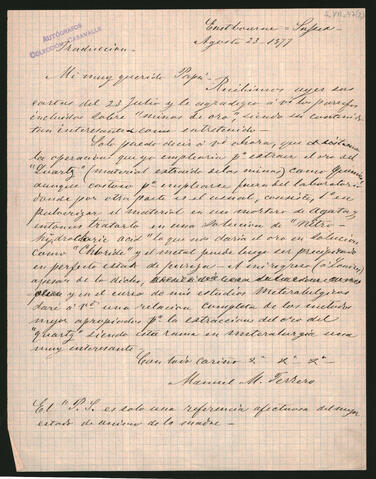 AUTÓGRAFOS
COLECCIÓN CARAVALLE
Eastbourne = Sussex
Agosto 23 - 1877
Traduccion -
Mi muy querido Papá -
Recibimos ayer sus
cartas del 23 Julio y le agradezco á Vd los parrafos
incluidos sobre "minas de oro" siendo su contenido
tan interesante como entretenido -
Solo puedo decir á Vd ahora, que
la operacion que yo emplearia pª extraer el oro del
"Quartz" (material extraido de las minas) como
aunque costoso pª emplearse fuera del laboratorio
donde por otra parte es el usual, consiste, en
pulverizar el material en un mortero de agata y
entonces tratarlo en una solucion de "Nitro-
hydrochloric acid" lo que nos daria el oro en solucion
como "Chloride" y el metal puede luego ser precipitado
en perfecto estado de pureza - A mi regreso á Londres,
apesar de lo dicho,
y en el curso de mis estudios Metalurgicos
daré á Vd una relacion completa de los metodos
mejor apropiados pª la extraccion del oro del
"quartz" siendo esta rama en metalurgia una
muy interesante
Con todo cariño Xª Xª Xª -
Manuel M. Terrero
El "P.S. es solo una referencia afectuosa del mejor
estado de animo de la madre -